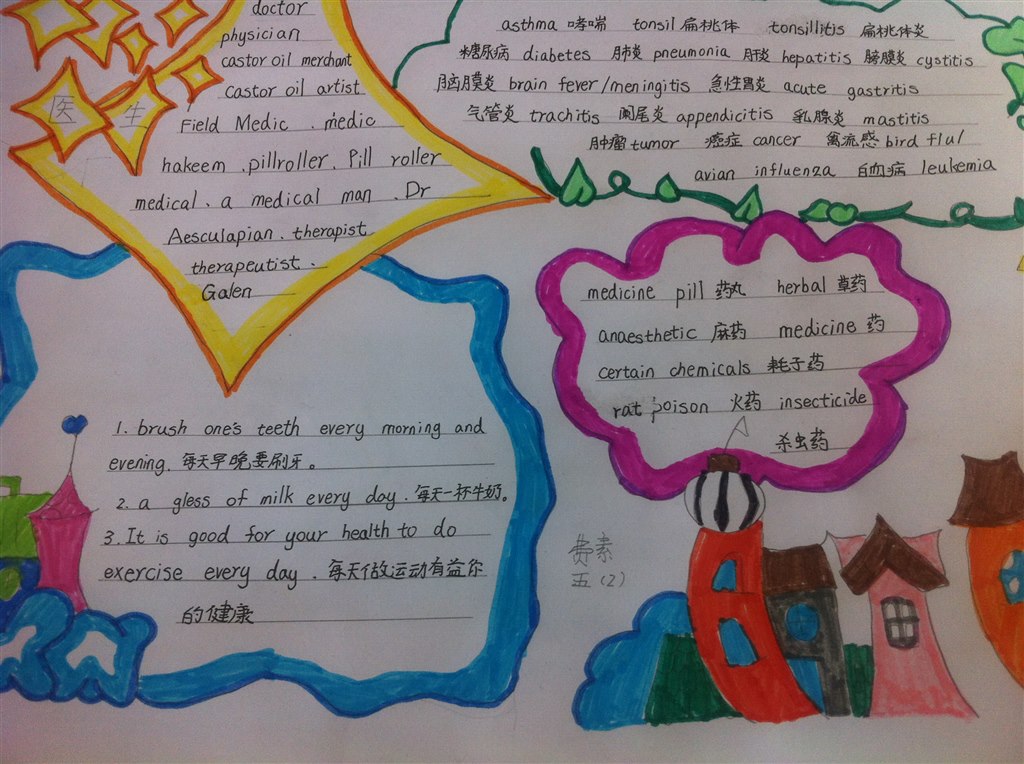 医生
doctor
physician
castor oil merchant
castor oil artist
Field Medic、medic
hakeem、pillroller、Pill roller
medical、a medical man、Dr
Aesculapian、therapist
therapeutist、
Galen
asthma 哮喘 tonsil 扁桃体 tonsillitis 扁桃体炎
糖尿病 diabetes 肺炎 pneumonia 肝炎 hepatitis 膀胱炎 cystitis
脑膜炎 brain fever/meningitis 急性胃炎 acute gastritis
气管炎 trachitis 阑尾炎 appendicitis 乳腺炎 mastitis
肿瘤 tumor 癌症 cancer 禽流感 bird flu/
avian influenza 白血病 leukemia
medicine pill 药丸 herbal 草药
anaesthetic 麻药 medicine 药
certain chemicals 耗子药
rat poison 火药 insecticide
杀虫药
1. brush one's teeth every morning and
evening. 每天早晚要刷牙。
2. a gless of milk every day. 每天一杯牛奶。
3. It is good for your health to do
exercise every day. 每天做运动有益你
的健康
素
五(2)